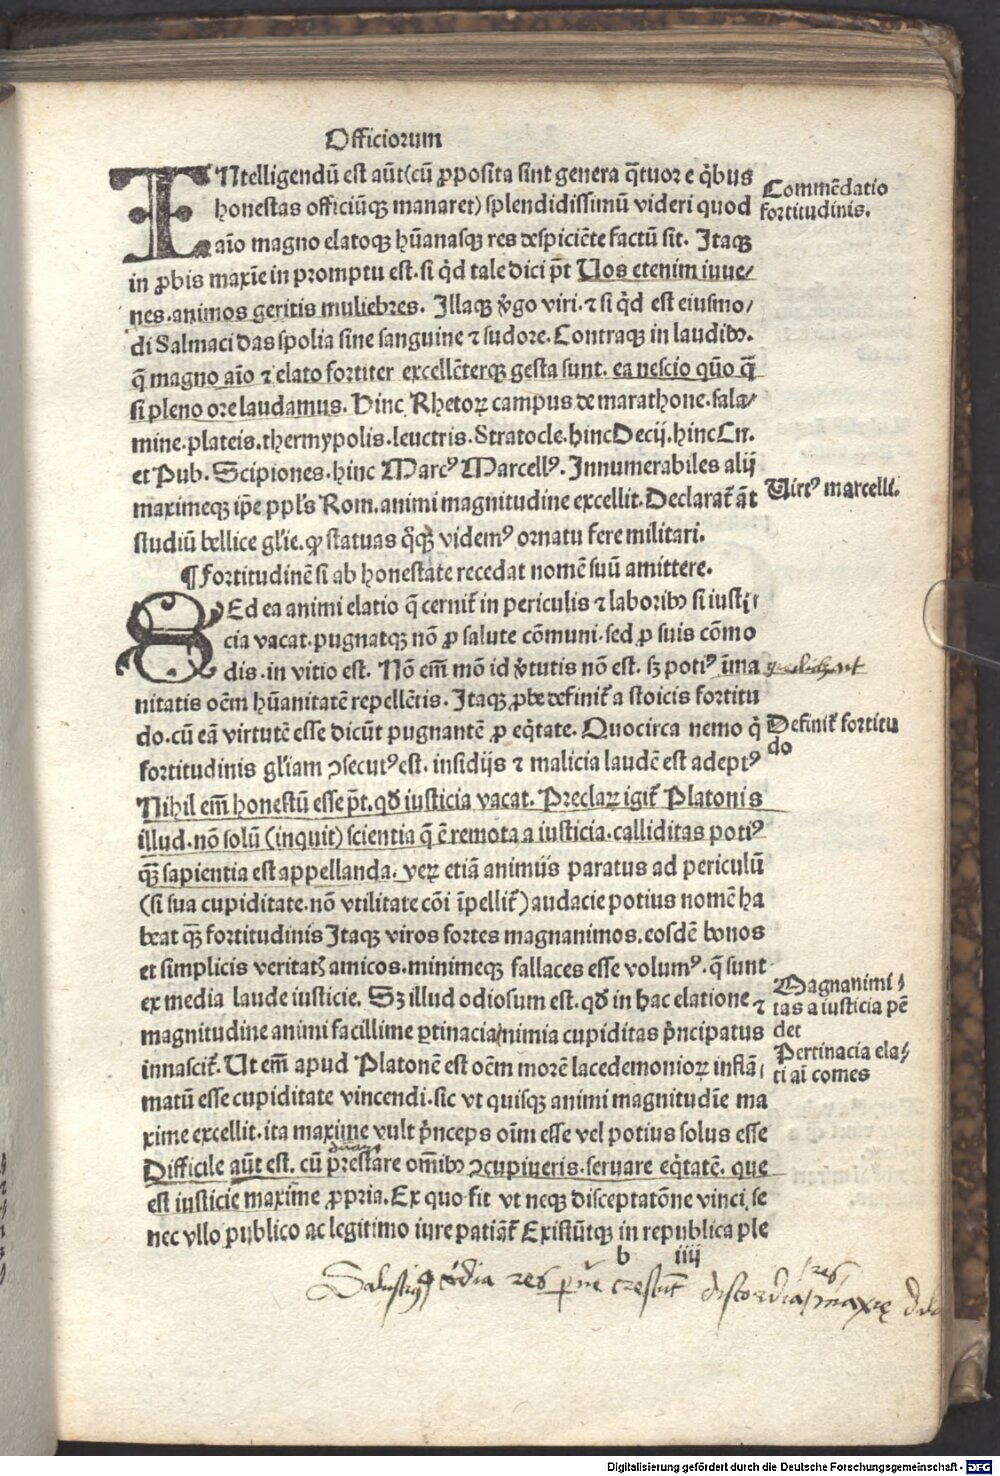 Officiorum
INtelligendū est aūt(cū ꝓposita sint genera q̄tuor e q̇bus
honestas officiūqꝫ manaret) splendidissimū videri quod
aīo magno elatoqꝫ hūanasqꝫ res despiciēte factū sit. Itaqꝫ
in ꝓbis maxīe in promptu est. si q̇d tale dici pt̄ Uos etenim iuue/
nes. animos geritis muliebres. Illaqꝫ v̇go viri. ⁊ si q̇d est eiusmo/
di Salmacidas spolia sine sanguine ⁊ sudore. Contraqꝫ in laudibꝫ.
q̄ magno aīo ⁊ elato fortiter excellēterqꝫ gesta sunt. ea nescio quō q̄
si pleno ore laudamus. Hinc Rhetoꝝ campus de marathone. sala/
mine. plateis. thermypolis. leuctris. Stratocle. hinc Decij. hinc Cn.
et Pub. Scipiones. hinc Marcꝰ Marcellꝰ. Innumerabiles alij
maximeqꝫ ip̄e ppl's Rom. animi magnitudine excellit. Declarat̄ āt
studiū bellice gl'ie. ꝙ statuas q̊qꝫ videmꝰ ornatu fere militari.
¶ Fortitudinē si ab honestate recedat nomē suū amittere.
SEd ea animi elatio q̄ cernit̄ in periculis ⁊ laboribꝫ si iusti
cia vacat. pugnatqꝫ nō ꝓ salute cōmuni. sed ꝓ suis cōmo
dis. in vitio est. Nō em̄ mō id v̇tutis nō est. sꝫ potiꝰ īma
nitatis oēm hūanitatē repellētis. Itaqꝫ ꝓbe definit̄ a stoicis fortitu
do. cū eā virtutē esse dicūt pugnantē ꝓ eq̇tate. Quocirca nemo q̇
fortitudinis gl'iam ꝯsecutꝰ est. insidijs ⁊ malicia laudē est adeptꝰ
Nihil em̄ honestū esse pt̄. qđ iusticia vacat. Preclaꝝ igit̄ Platonis
illud. nō solū (inquit) scientia q̄ ē remota a iusticia. calliditas potiꝰ
q̄ꝫ sapientia est appellanda. veꝝ etiā animus paratus ad periculū
(si sua cupiditate. nō vtilitate cōi īpellit̄) audacie potius nomē ha
beat q̄ꝫ fortitudinis Itaqꝫ viros fortes magnanimos. eosdē bonos
et simplicis veritatꝭ amicos. minimeqꝫ fallaces esse volumꝰ. q̄ sunt
ex media laude iusticie. Sꝫ illud odiosum est. qđ in hac elatione ⁊
magnitudine animi facillime ꝑtinacia nimia cupiditas pͥncipatus
innascit̄. Ut em̄ apud Platonē est oēm morē lacedemonioꝝ inflā/
matū esse cupiditate vincendi. sic vt quisqꝫ animi magnitudīe ma
xime excellit. ita maxime vult pͥnceps oīm esse vel potius solus esse
Difficile aūt est. cū prestare om̄ibꝫ ꝯcupiueris. seruare eq̇tatē. que
est iusticie maxime ꝓpria. Ex quo fit vt neqꝫ disceptatōne vinci se
nec vllo publico ac legitimo iure patiāt̄ Existūtqꝫ in republica ple
b iiij
Commēdatio
fortitudinis.
Uirtꝰ marcelli.
Definit̄ fortitu
do
Magnanimi/
tas a iusticia pē
det
Pertinacia ela/
ti aī comes
Digitalisierung gefördert durch die Deutsche Forschungsgemeinschaft - DFG